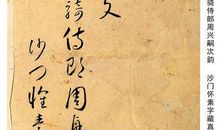 骑侍郎周兴嗣次韵 沙门怀素字藏真
文
騎侍郎周
沙门懷